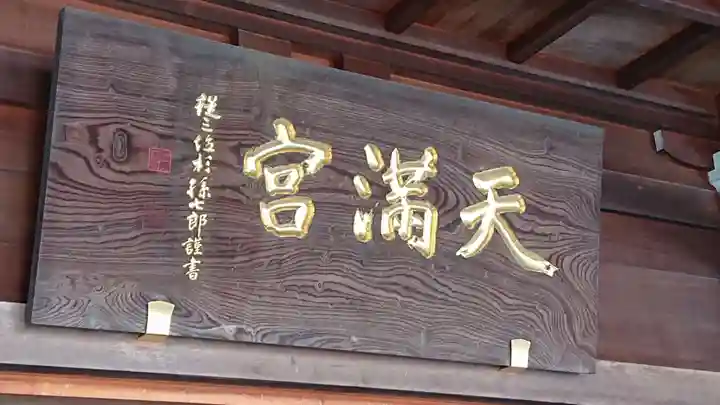 天満宮
従三位杉孫七郎謹書